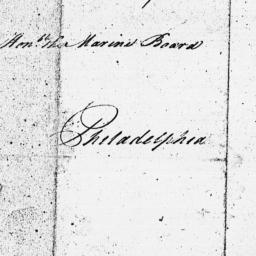 Honble the Marine Board
Philadelphia